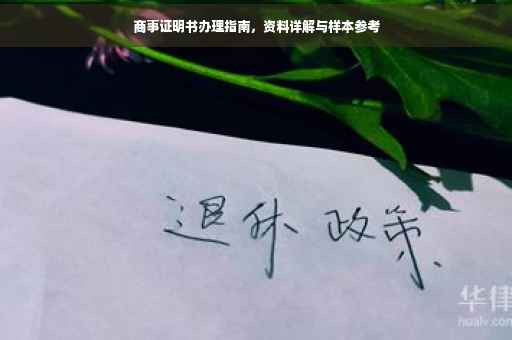 商事证明书办理指南，资料详解与样本参考
退休 政策
华律
hualv.com